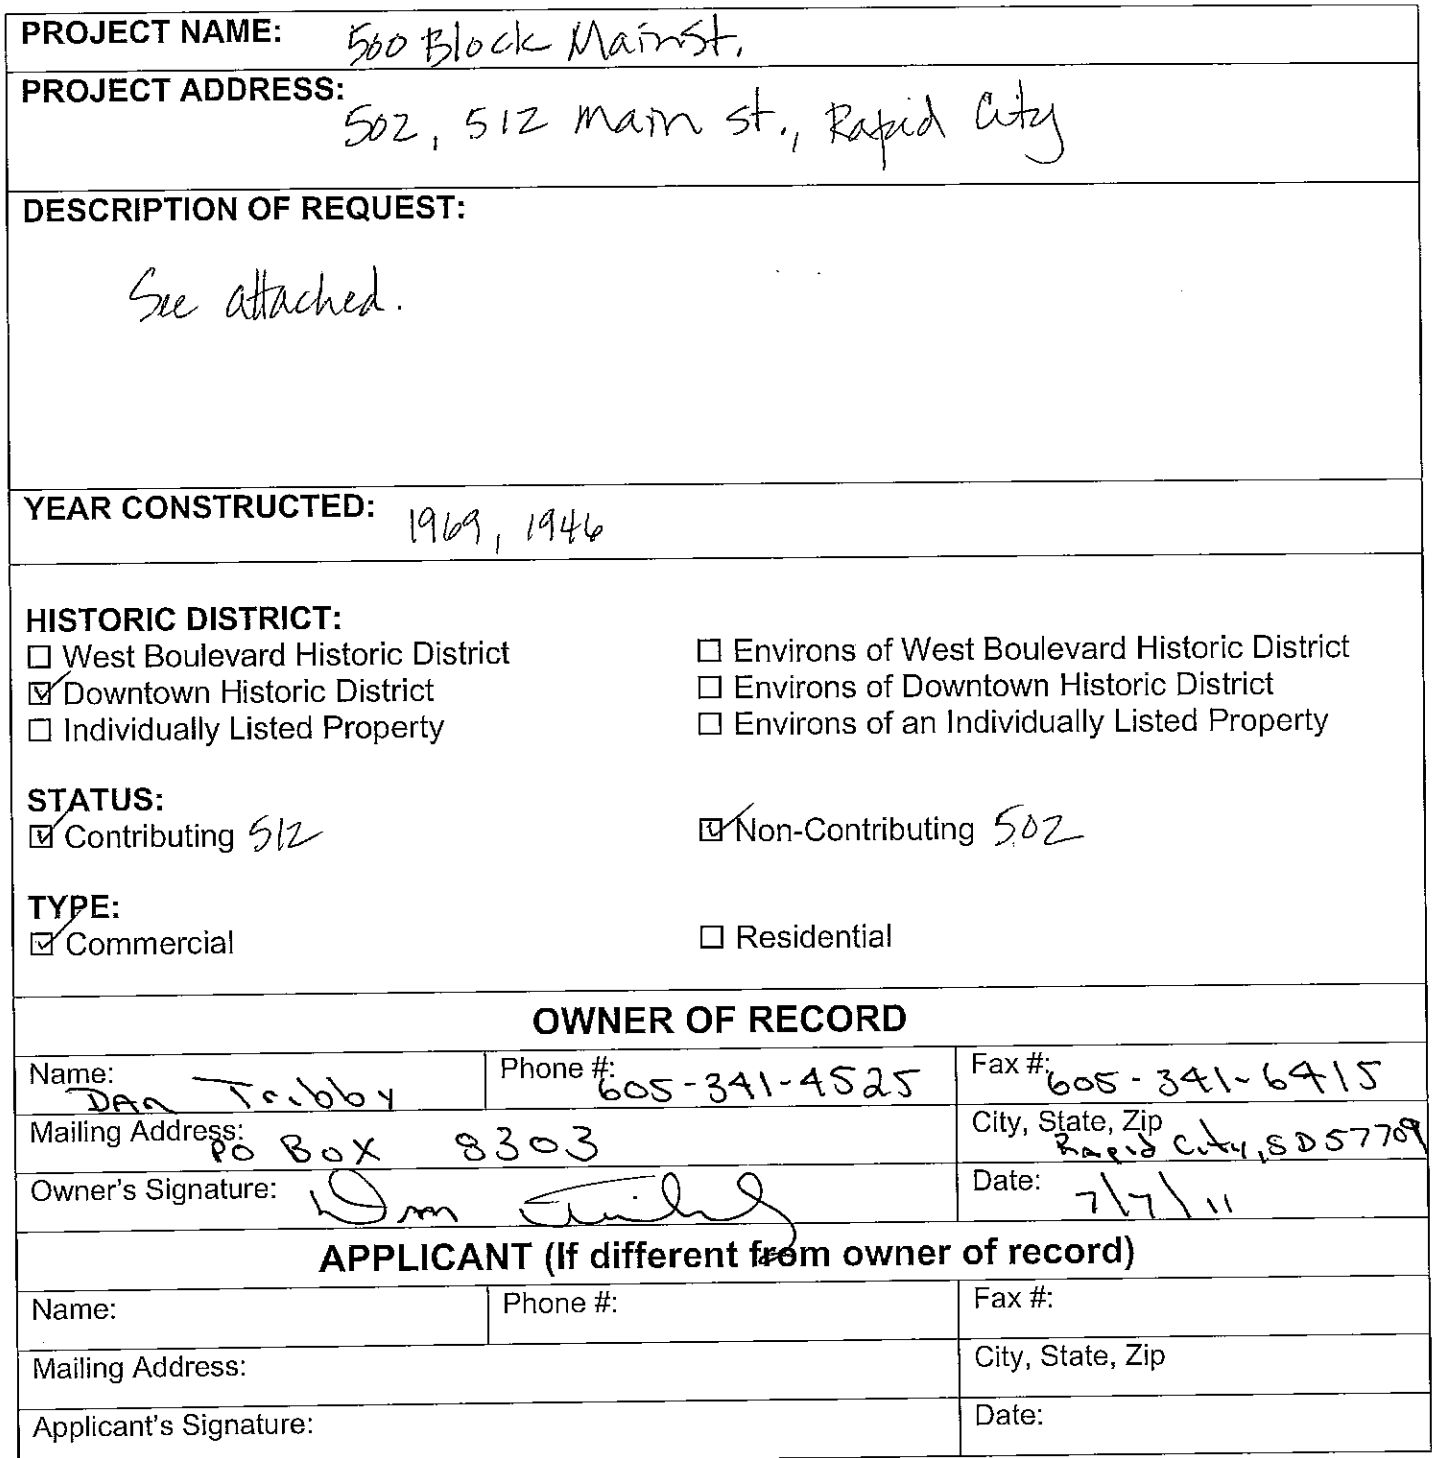 PROJECT NAME: 500 Block Main St.
PROJECT ADDRESS:
502, 512 Main St., Rapid City
DESCRIPTION OF REQUEST:
See attached.
YEAR CONSTRUCTED: 1969, 1946
HISTORIC DISTRICT:
☐ West Boulevard Historic District ☐ Environs of West Boulevard Historic District
☑ Downtown Historic District ☐ Environs of Downtown Historic District
☐ Individually Listed Property ☐ Environs of an Individually Listed Property
STATUS:
☑ Contributing 512 ☑ Non-Contributing 502
TYPE:
☑ Commercial ☐ Residential
OWNER OF RECORD
Name: Dan Tribby Phone #: 605-341-4525 Fax #: 605-341-6415
Mailing Address: PO Box 8303 City, State, Zip Rapid City, SD 57709
Owner's Signature: Dan Tribby Date: 7/7/11
APPLICANT (If different from owner of record)
Name: Phone #: Fax #:
Mailing Address: City, State, Zip
Applicant's Signature: Date: